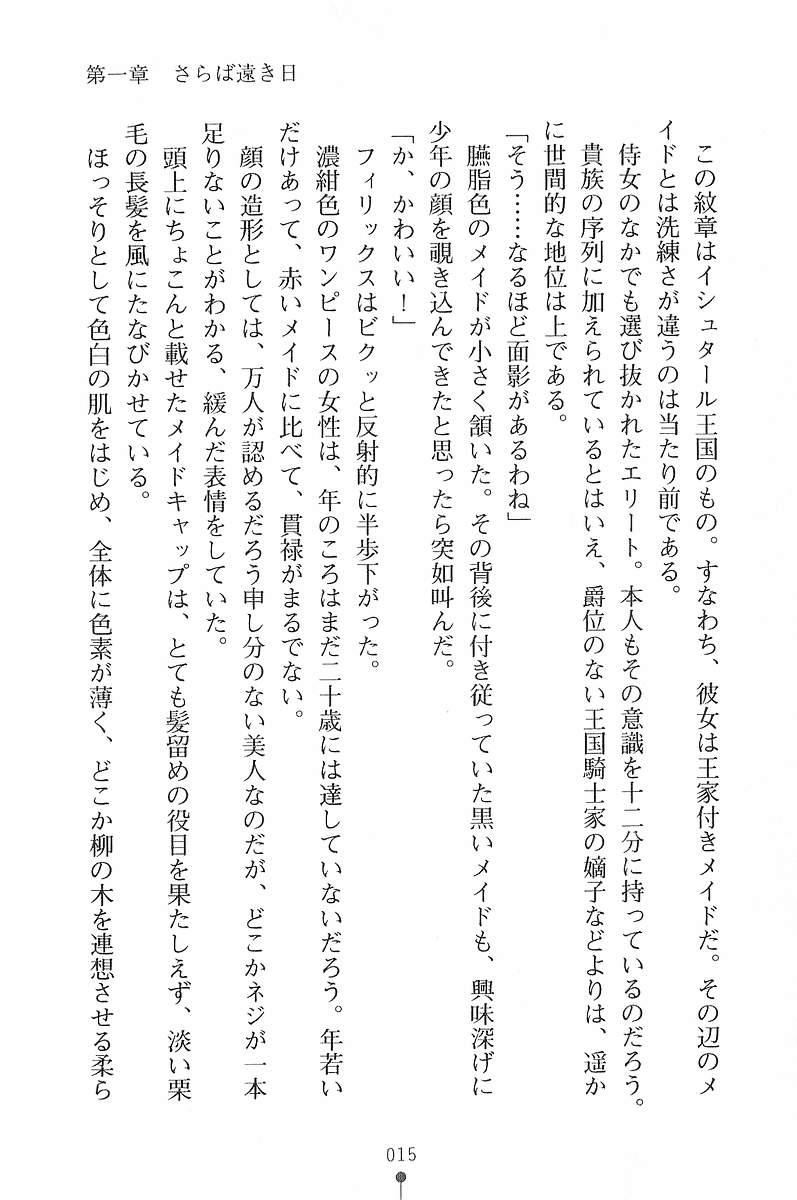 第一章　さらば遠き日
　この紋章はイシュタール王国のもの。すなわち、彼女は王家付きメイドだ。その辺のメ
イドとは洗練さが違うのは当たり前である。
　侍女のなかでも選び抜かれたエリート。本人もその意識を十二分に持っているのだろう。
　貴族の序列に加えられているとはいえ、爵位のない王国騎士家の嫡子などよりは、遥か
に世間的な地位は上である。
「そう……なるほど面影があるわね」
　臙脂色のメイドが小さく頷いた。その背後に付き従っていた黒いメイドも、興味深げに
少年の顔を覗き込んできたと思ったら突如叫んだ。
「か、かわいい！」
　フィリックスはビクッと反射的に半歩下がった。
　濃紺色のワンピースの女性は、年のころはまだ二十歳には達していないだろう。年若い
だけあって、赤いメイドに比べて、貫禄がまるでない。
　顔の造形としては、万人が認めるだろう申し分のない美人なのだが、どこかネジが一本
足りないことがわかる、緩んだ表情をしていた。
　頭上にちょこんと載せたメイドキャップは、とても髪留めの役目を果たしえず、淡い栗
毛の長髪を風にたなびかせている。
　ほっそりとして色白の肌をはじめ、全体に色素が薄く、どこか柳の木を連想させる柔ら
015